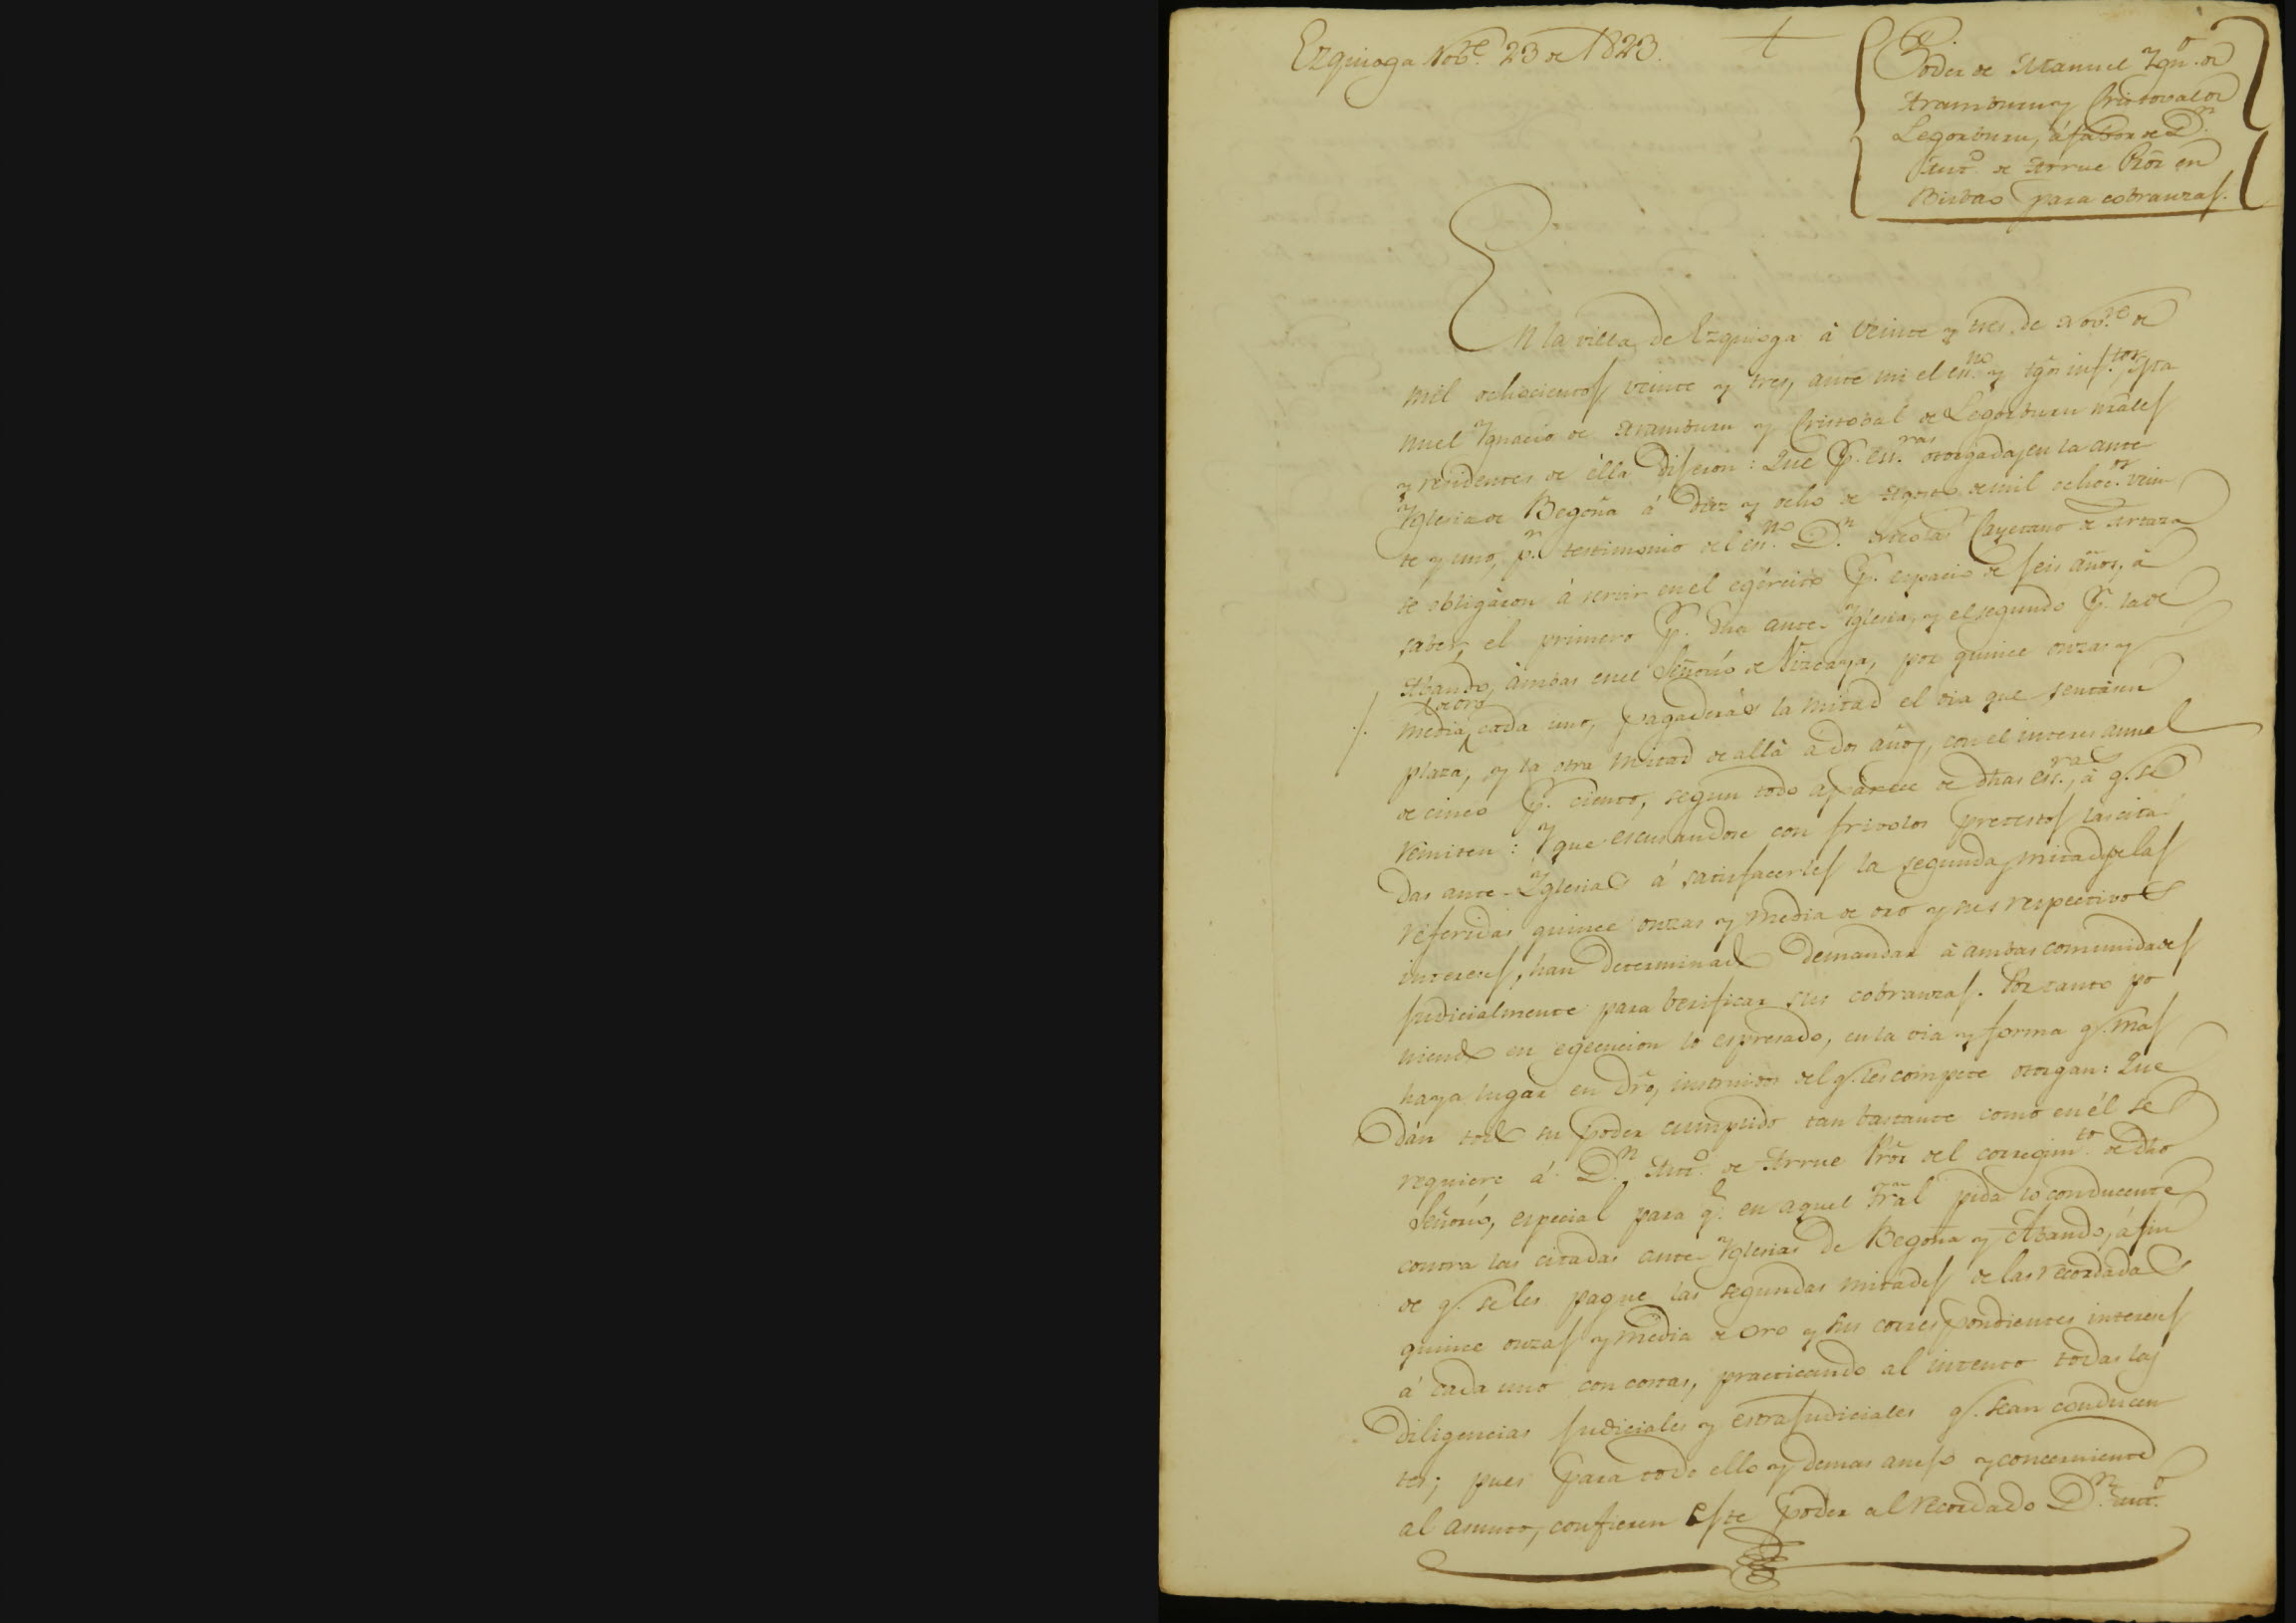 Ezquioga Nobe. 23 de 1823.
Poder de Manuel Ygno. de
Aramburu y Cristoval de
Legorburu, á fabor de Dn.
Anto. de Arrue Pror. en
Bilbao para cobranzas.
En la villa de Ezquioga à veinte y tres de Nove. de
mil ochocientos veinte y tres, ante mi el esno. y tgos infrtos.
nuel Ygnacio de Aramburu y Cristobal de Legorburu
y residentes de èlla Digeron: Que pr. esras. otorgadas en la ante
Yglesia de Begoña á diez y ocho de Agosto de mil ochoctos. vein
te y uno, pr. testimonio del esno. Dn. Nicolas Cayetano de Artaza
se obligàron á servir en el egército pr. espacio de seis años, à
saber, el primero pr. dha ante-Yglesia, y el segundo pr. la de
Abando, àmbas en el Señorío de Vizcaya, por quince onzas y
de oro
media cada uno, pagaderas la mitad el dia que sentàsen
plaza, y la otra mitad de allà á dos años, con el interes anual
de cinco pr. ciento, segun todo aparece de dhas esras., à q. se
remiten: Y que escusandose con frivolos pretestos las cita
das ante-Yglesias á satisfacerles la segunda mitad de las
referidas quince onzas y media de oro y sus respectivos
intereses, han determinado demandar à ambas comunidades
judicialmente para berificar sus cobranzas. Por tanto po
niendo en egecucion lo espresado, en la via y forma q. mas
haya lugar en dro, instruidos del q. les compete otorgan: Que
dán todo su poder cumplido tan bastante como en él se
requiere á Dn. Anto. de Arrue Pror del corregimto. de dho
Señorío, especial para q. en aquel Tral pida lo conducente
contra las citadas ante-Yglesias de Begoña y Abando, á fin
de q. se les pague las segundas mitades de las recordadas
quince onzas y media de oro y sus correspondientes intereses
á cada uno con costas, practicando al intento todas las
diligencias judiciales y estrajudiciales q. sean conducen
tes; pues para todo ello y demas anejo y concerniente
al asunto, confieren este poder al recordado Dn. Anto.